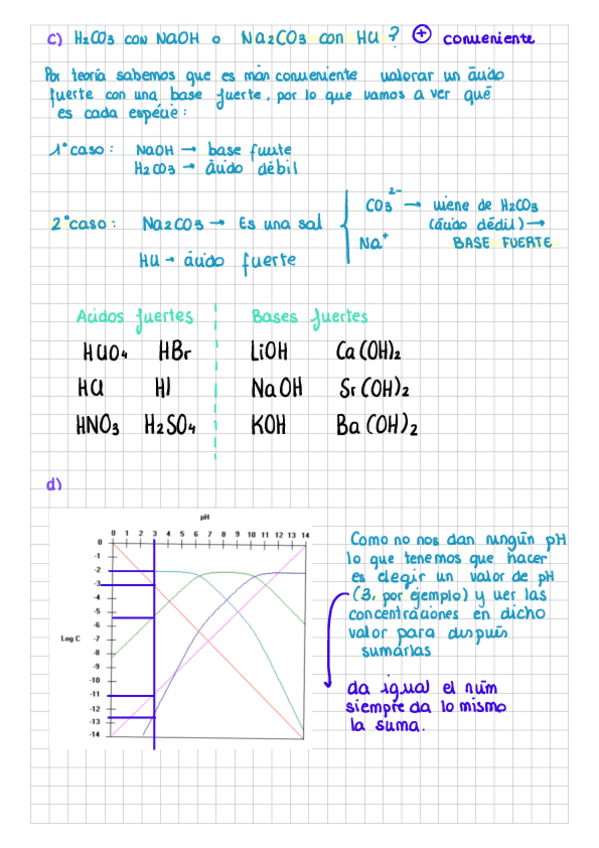 c) H2CO3 con NaOH o Na2CO3 con HCl? ⊕ conveniente
Por teoría sabemos que es más conveniente valorar un ácido
fuerte con una base fuerte, por lo que vamos a ver qué
es cada espécie:
1º caso: NaOH → base fuerte
H2CO3 → ácido débil
2º caso: Na2CO3 → Es una sal
CO3 2- → viene de H2CO3
(ácido dédil) →
Na+ BASE FUERTE
HCl → ácido fuerte
Acidos fuertes Bases fuertes
HClO4 HBr LiOH Ca(OH)2
HCl HI NaOH Sr(OH)2
HNO3 H2SO4 KOH Ba(OH)2
d)
pH
0 1 2 3 4 5 6 7 8 9 10 11 12 13 14
0
-1
-2
-3
-4
-5
-6
Log C -7
-8
-9
-10
-11
-12
-13
-14
Como no nos dan ningún pH
lo que tenemos que hacer
es elegir un valor de pH
(3, por ejemplo) y ver las
concentraciones en dicho
valor para después
sumarlas
da igual el núm
siempre da lo mismo
la suma.